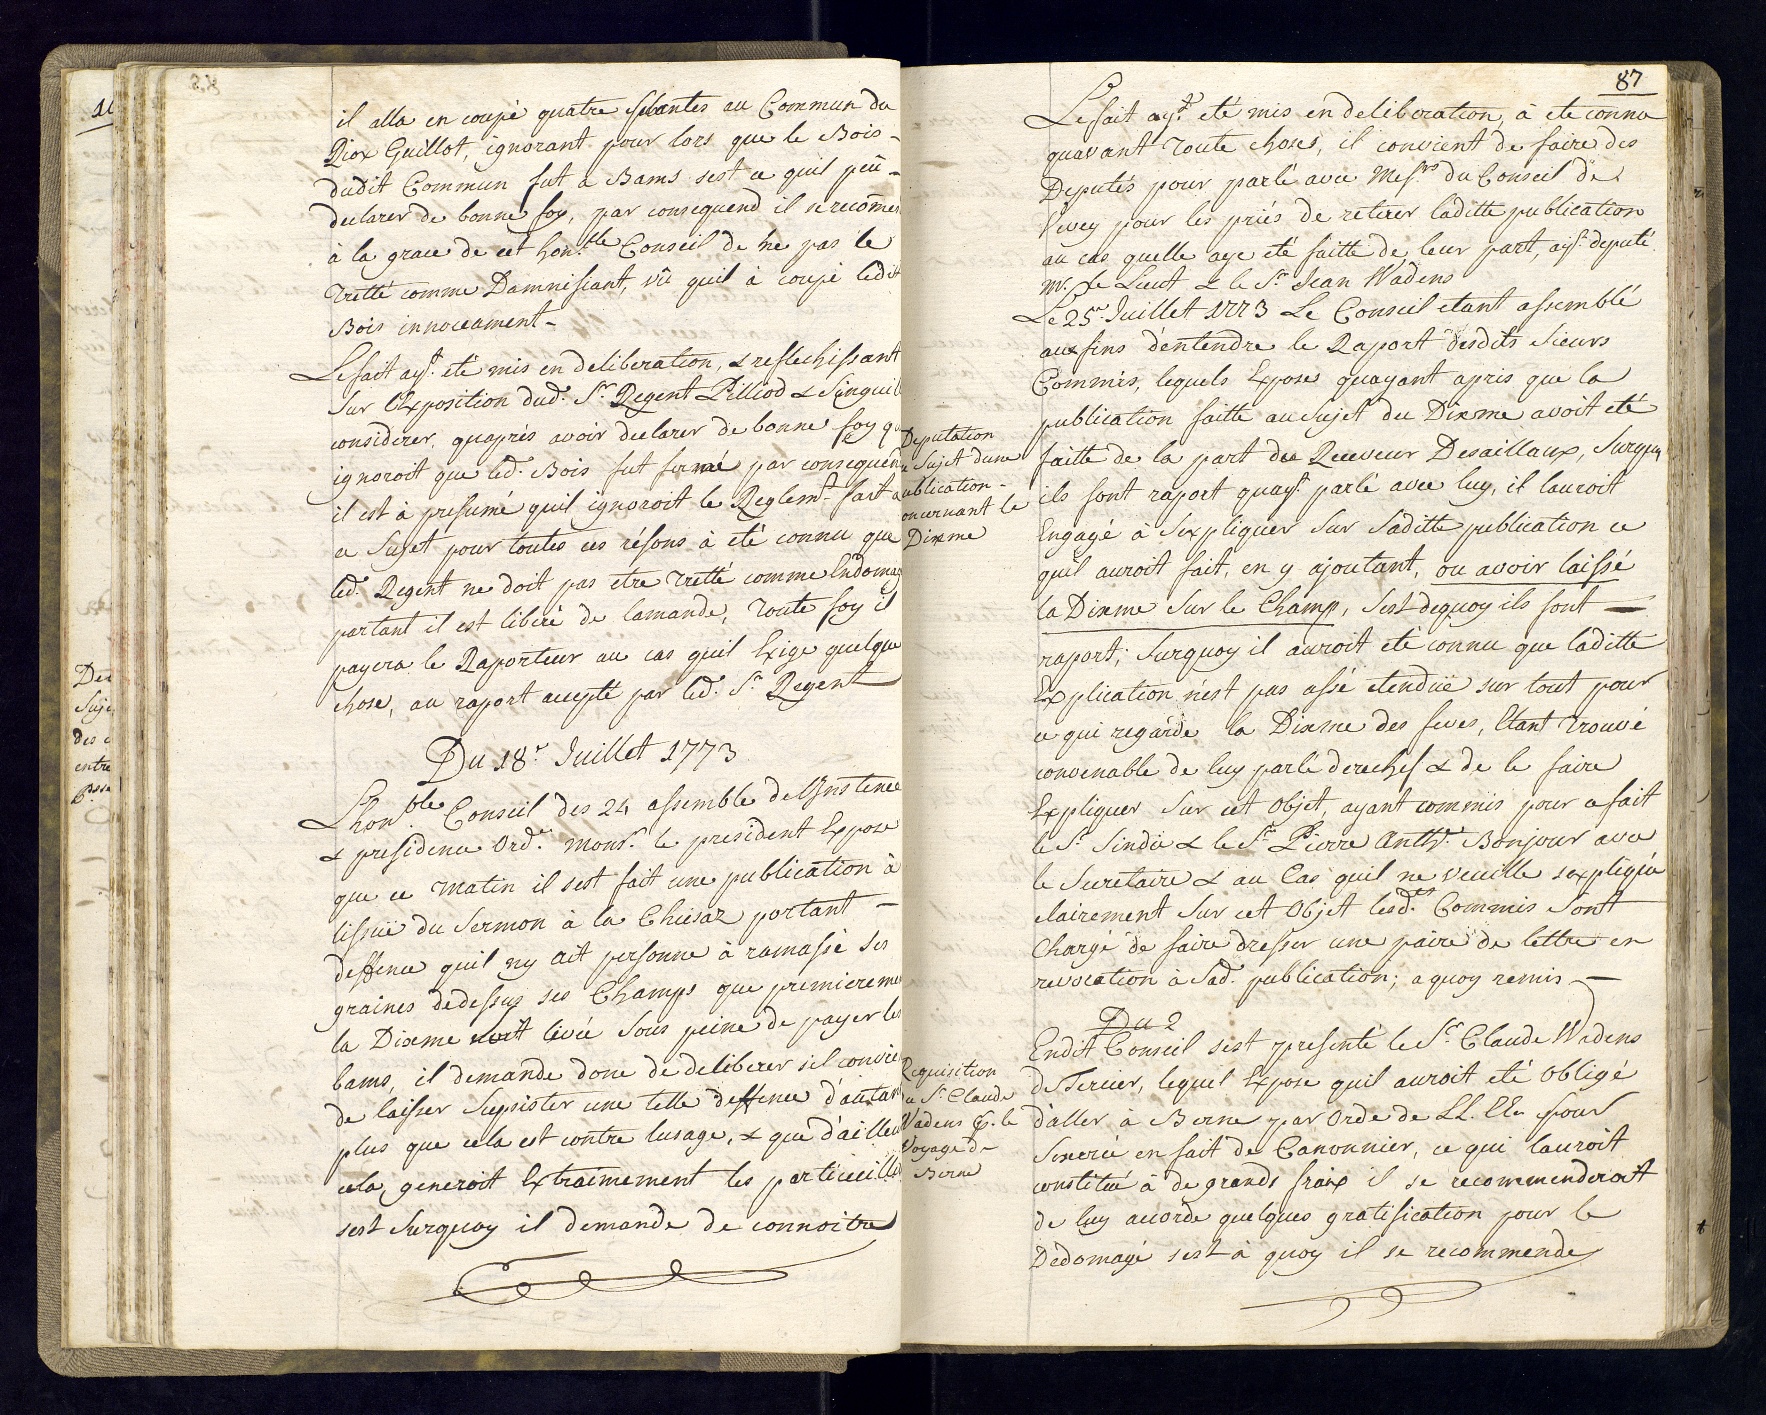 il alla en coupé quatre suantes au Commun du
Riox Guillot, ignorant pour lors que le Bois -
dudit Commun fut a Bams sest ce quil peu -
declarer de bonne foy, par consequend il se recomes
à la grace de cet hon.ble Conseil de ne pas le
tretté comme Damnifiant, vû quil à coupé ledit
Bois innoceament -
Le fait ay.t eté mis en deliberation, & reflechissant
Sur l'Exposition dud. S.r Regent Pilliod &
considerer, quaprés avoir declarer de bonne foy qu
ignoroit que led. Bois fut fermé par consequen
il est à presumé quil ignoroit le Reglem.t fait a
ce Sujet pour toutes ces résons à eté connu que
led. Regent ne doit pas etre tretté comme Endomag
partant il est liberé de lamande, toute foy il
payera le Raporteur au cas quil Exige quelque
chose, au raport accepté par led. S.r Regent
Du 18.e Juillet 1773
L'hon.ble Conseil des 24 assemblé de l'Instence
& presidence Ord.re Mons.r le president Expose
que ce matin il sest fait une publication à
lissuë du Sermon à la Chiésaz portant -
deffence quil ny ait personne à ramassé ses
graines dedessus ses Champs que premiereme
la Dixme soit levée Sous peine de payer les
bams, il demande donc de deliberer sil convie
de laisser Supsister une telle deffence d'autan
plus que cela est contre lusage, & que d'ailleu
cela generoit Extraimement les particuilli
sest Surquoy il demande de connoitre
87
Le fait ay.t eté mis en deliberation, à ete connu
quavant toute choses, il convient de faire des
Deputés pour parlé avec Mess.rs du Conseil de
Vevey pour les priés de retirer laditte publication
au cas quelle aye eté faitte de leur part, ay.t deputé
M.r le Lieut & le S.r Jean Wadens
Le 25.e Juillet 1773 Le Conseil etant assemblé
aux fins d'entendre le Raport desdits Sieurs
Commis, lequels Exposes quayant apris que la
publication faitte au Sujet du Dixme avoit eté
Deputation
au Sujet dune
publication -
concernant le
Dixme
faitte de la part du Receveur Desaillaux, Surquoy
ils font raport quay.t parlé avec luy, il lauroit
Engagé à Sexpliquer Sur Saditte publication ce
quil auroit fait, en y ajoutant, ou avoir laissé
la Dixme Sur le Champ, Sest dequoy ils font -
raport; Surquoy il auroit eté connu que laditte
Explication n'est pas assé etenduë sur tout pour
ce qui regarde la Dixme des feves, Etant trouvé
convenable de luy parlé derechef & de le faire
Expliquer Sur cet Objet, ayant commis pour ce fait
le S.r Sindic & le S.r Pierre Anth.e Bonjour avec
le Secretaire & au Cas quil ne veuille sexpliqué
clairement Sur cet Objet lesd.es Commis Sont
Chargé de faire dresser une paire de lettre en
revocation à Sad. publication; a quoy remis -
Du 2
Requisition
du S.r Claude
Wadens p. le
Voyage de
Berne
Endit Conseil sest presenté le S.r Claude Wadens
de Tercier, lequel Expose quil auroit eté Obligé
d'aller à Berne par Orde de LL. EE. pour
Sexercé en fait de Canonnier, ce qui lauroit
constitué à de grands fraix il se recommenderoit
de luy accorde quelques gratification pour le
Dedomagé sest à quoy il se recommende